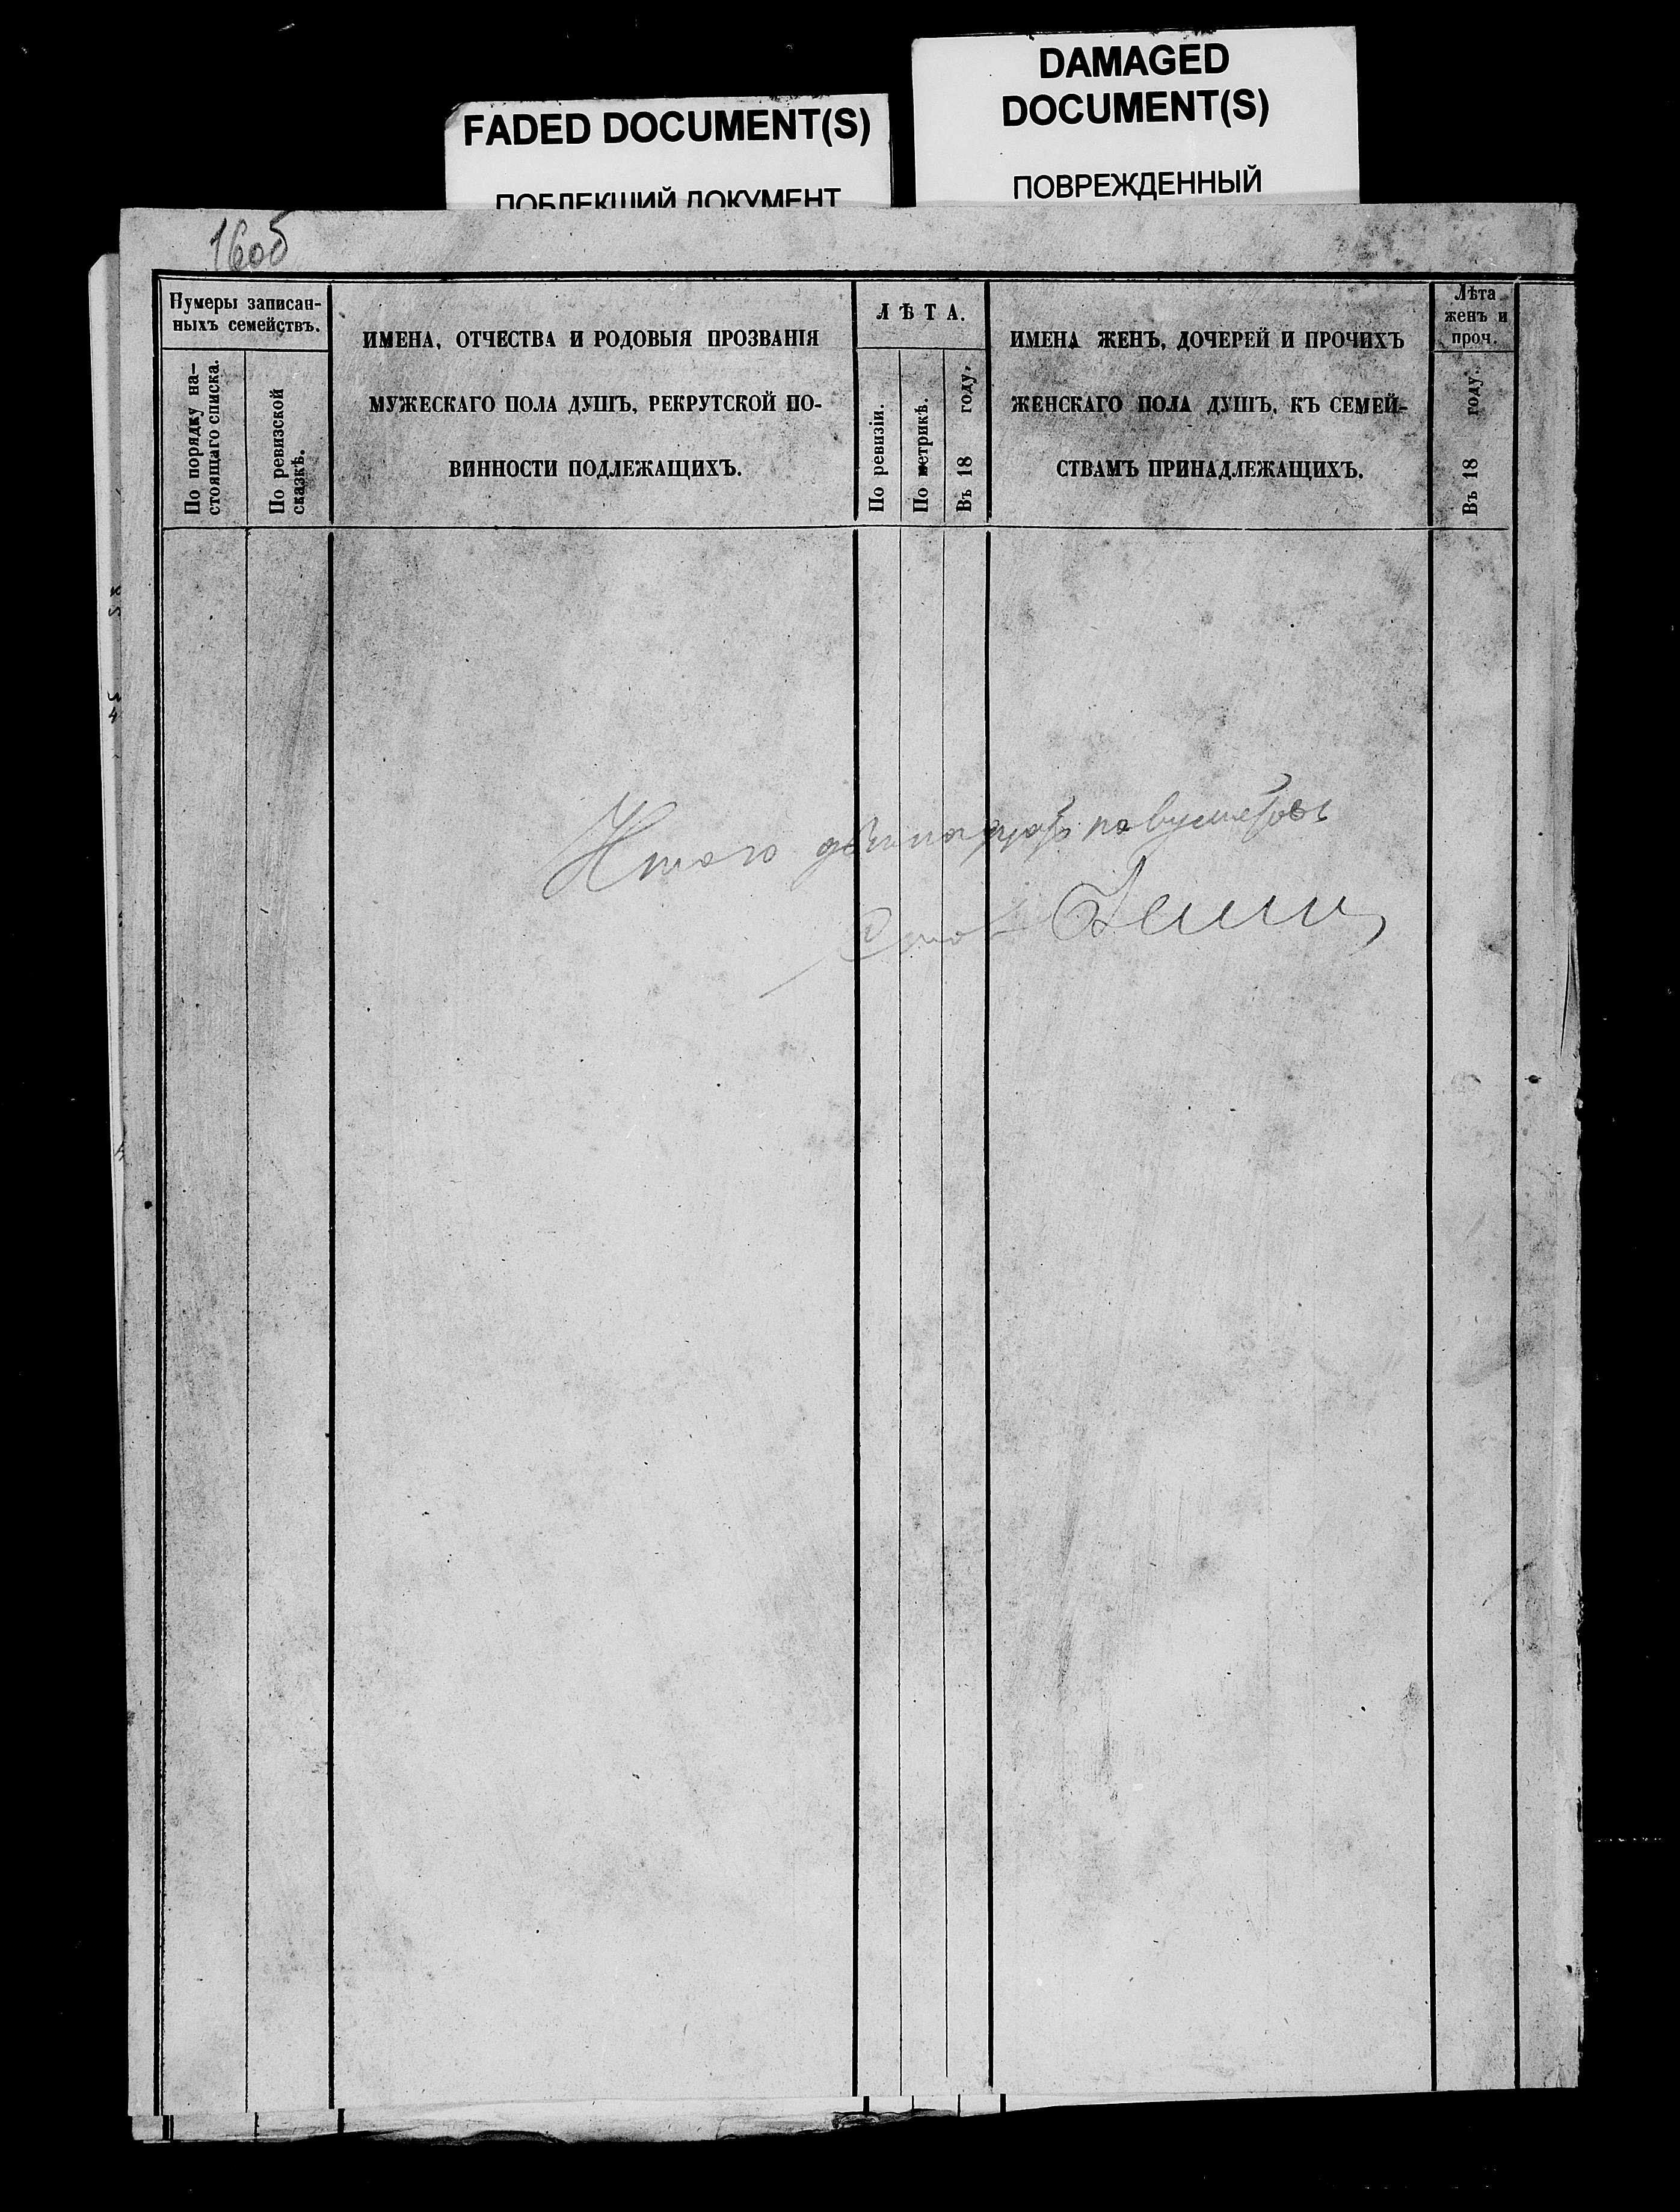 FADED DOCUMENT(S)
ПОБЛЕКШИЙ ДОКУМЕНТ
DAMAGED
DOCUMENT(S)
ПОВРЕЖДЕННЫЙ
160об
Нумеры записан-
ныхъ семействъ.
По порядку на-
стоящаго списка.
По ревизской
сказкѣ.
ИМЕНА, ОТЧЕСТВА И РОДОВЫЯ ПРОЗВАНІЯ
МУЖЕСКАГО ПОЛА ДУШЪ, РЕКРУТСКОЙ ПО-
ВИННОСТИ ПОДЛЕЖАЩИХЪ.
ЛѢТА.
По ревизіи.
По метрикѣ.
Въ 18 году.
ИМЕНА ЖЕНЪ, ДОЧЕРЕЙ И ПРОЧИХЪ
ЖЕНСКАГО ПОЛА ДУШЪ, КЪ СЕМЕЙ-
СТВАМЪ ПРИНАДЛЕЖАЩИХЪ.
Лѣта
женъ и
проч.
Въ 18 году.
Итого